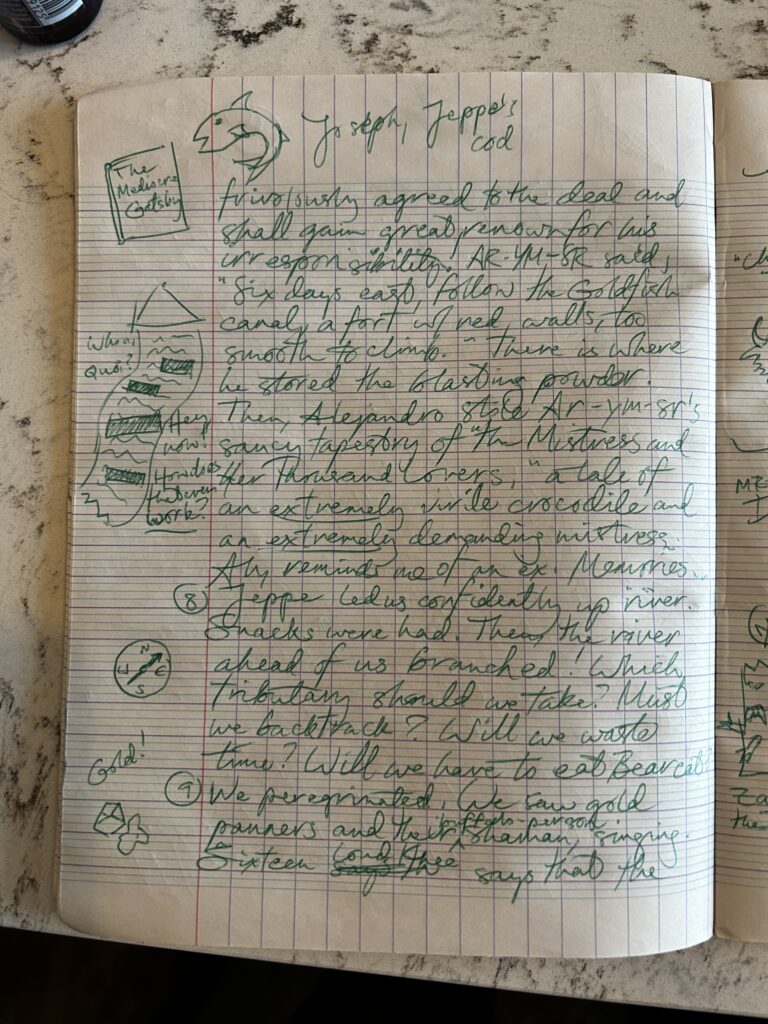 Joseph, Jeppe's
cod
The
Mediocre
Gatsby
frivolously agreed to the deal and
shall gain great renown for his
irresponsibility! AR-YM-SR said,
"Six days east, follow the Goldfish
canal, a fort w/ red walls, too
smooth to climb." There is where
he stored the blasting powder.
Then, Alejandro stole Ar-ym-sr's
saucy tapestory of "The Mistress and
Her Thousand Lovers," a tale of
an extremely virile crocodile and
an extremely demanding mistress.
Ah, reminds me of an ex. Memories...
Whoa,
Quoi?
Hey
now!
How does
that even
work?
8 Jeppe led us confidently up river.
Snacks were had. Then, the river
ahead of us branched! Which
tributary should we take? Must
we backtrack? Will we waste
time? Will we have to eat Bearcat?
N
W E
S
Gold!
9 We peregrinated. We saw gold
panners and their buffalo-person shaman, singing.
Sixteen says that the